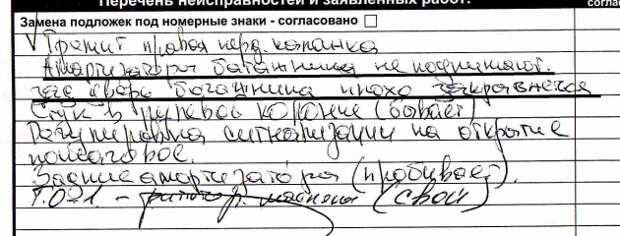 Перечень неисправностей и заявленных работ:
соглас
Замена подложек под номерные знаки - согласовано
V Трещит правая перд. колонка
Амортизаторы багажника не поднимают.
зад дверь багажника плохо закрывается
Стук в рулевой колонке (бывает)
Регулировка сигнализации на открытие
пособовое.
Задние амортизатора (пробивает).
Т.О 21 - (свои)